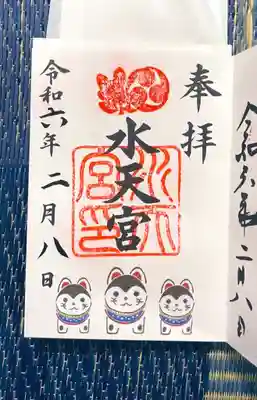 奉拝
水天宮
水天宮印
令和六年二月八日
令和六年二月八日